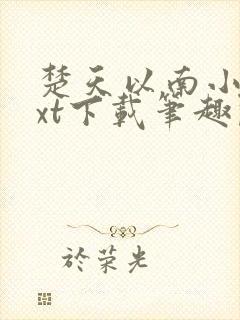 楚天以南小
xt下載筆趣
於荣光